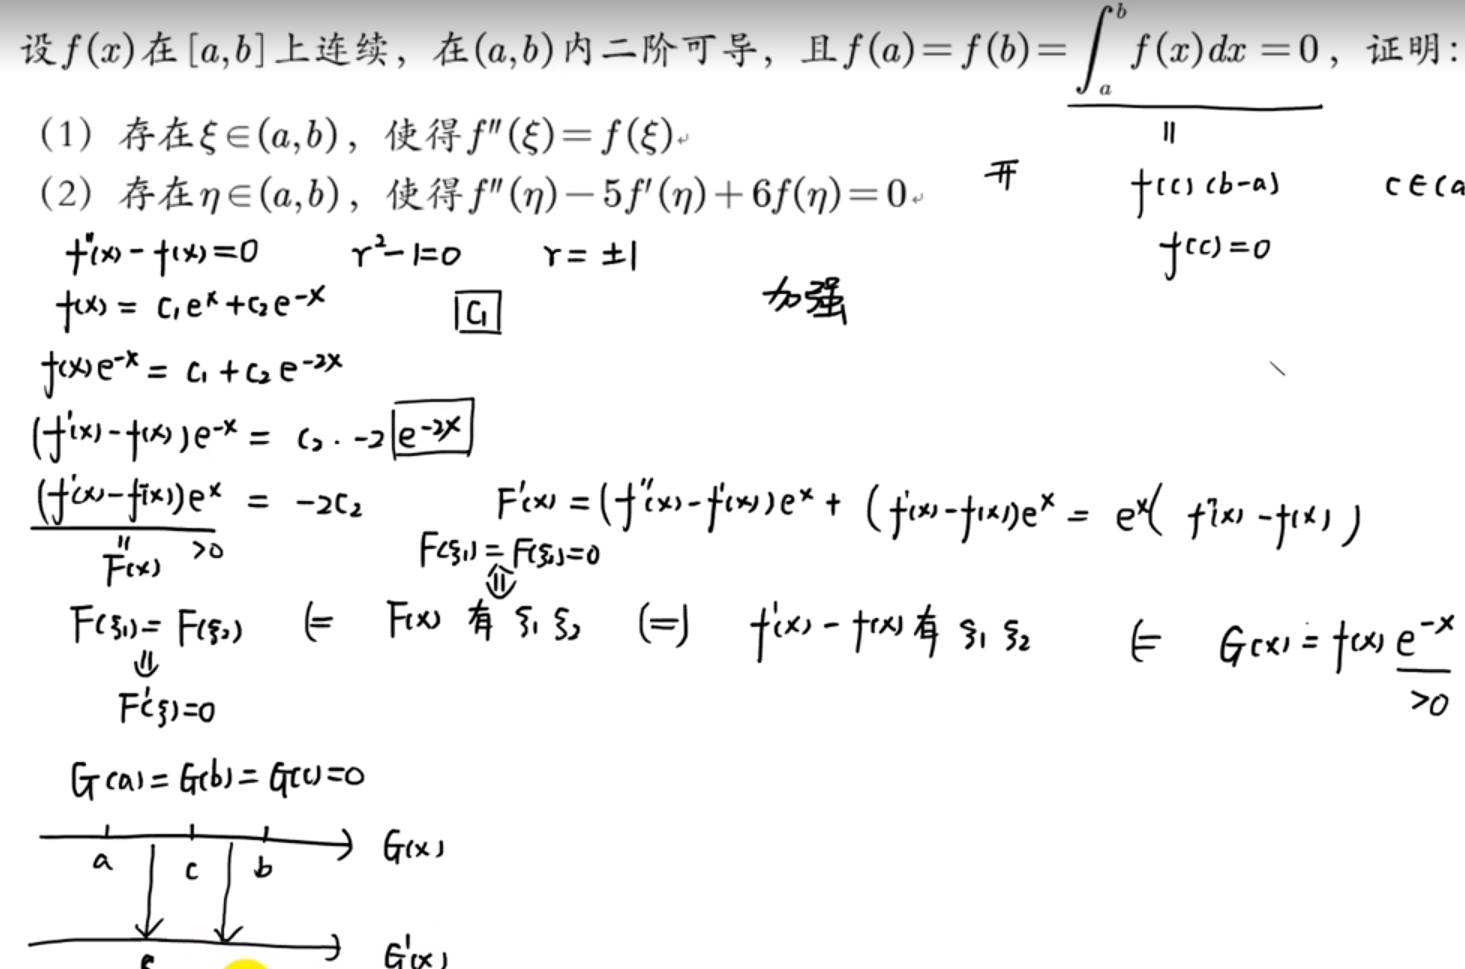 设f(x)在[a,b]上连续，在(a,b)内二阶可导，且f(a)=f(b)=∫_a^b f(x)dx=0，证明：
(1) 存在ξ∈(a,b)，使得f″(ξ)=f(ξ)
(2) 存在η∈(a,b)，使得f″(η)−5f′(η)+6f(η)=0
开
=
f(c)(b-a) c∈(a
f(c)=0
f″(x)-f(x)=0 r²-1=0 r=±1
加强
f(x)=C₁eˣ+C₂e⁻ˣ C₁
f(x)e⁻ˣ=C₁+C₂e⁻²ˣ
(f′(x)-f(x))e⁻ˣ=C₂·-2e⁻²ˣ
(f′(x)-f(x))eˣ=-2C₂ F′(x)=(f″(x)-f′(x))eˣ+(f′(x)-f(x))eˣ=eˣ(f″(x)-f(x))
= >0 F(ξ₁)=F(ξ₂)=0
F(x) ⇑
F(ξ₁)=F(ξ₂) ⇐ F(x)有ξ₁ ξ₂ (=) f′(x)-f(x)有ξ₁ ξ₂ ⇐ G(x)=f(x)e⁻ˣ
⇓ >0
F′(ξ)=0
G(a)=G(b)=G(c)=0
G(x)
a c b
G′(x)